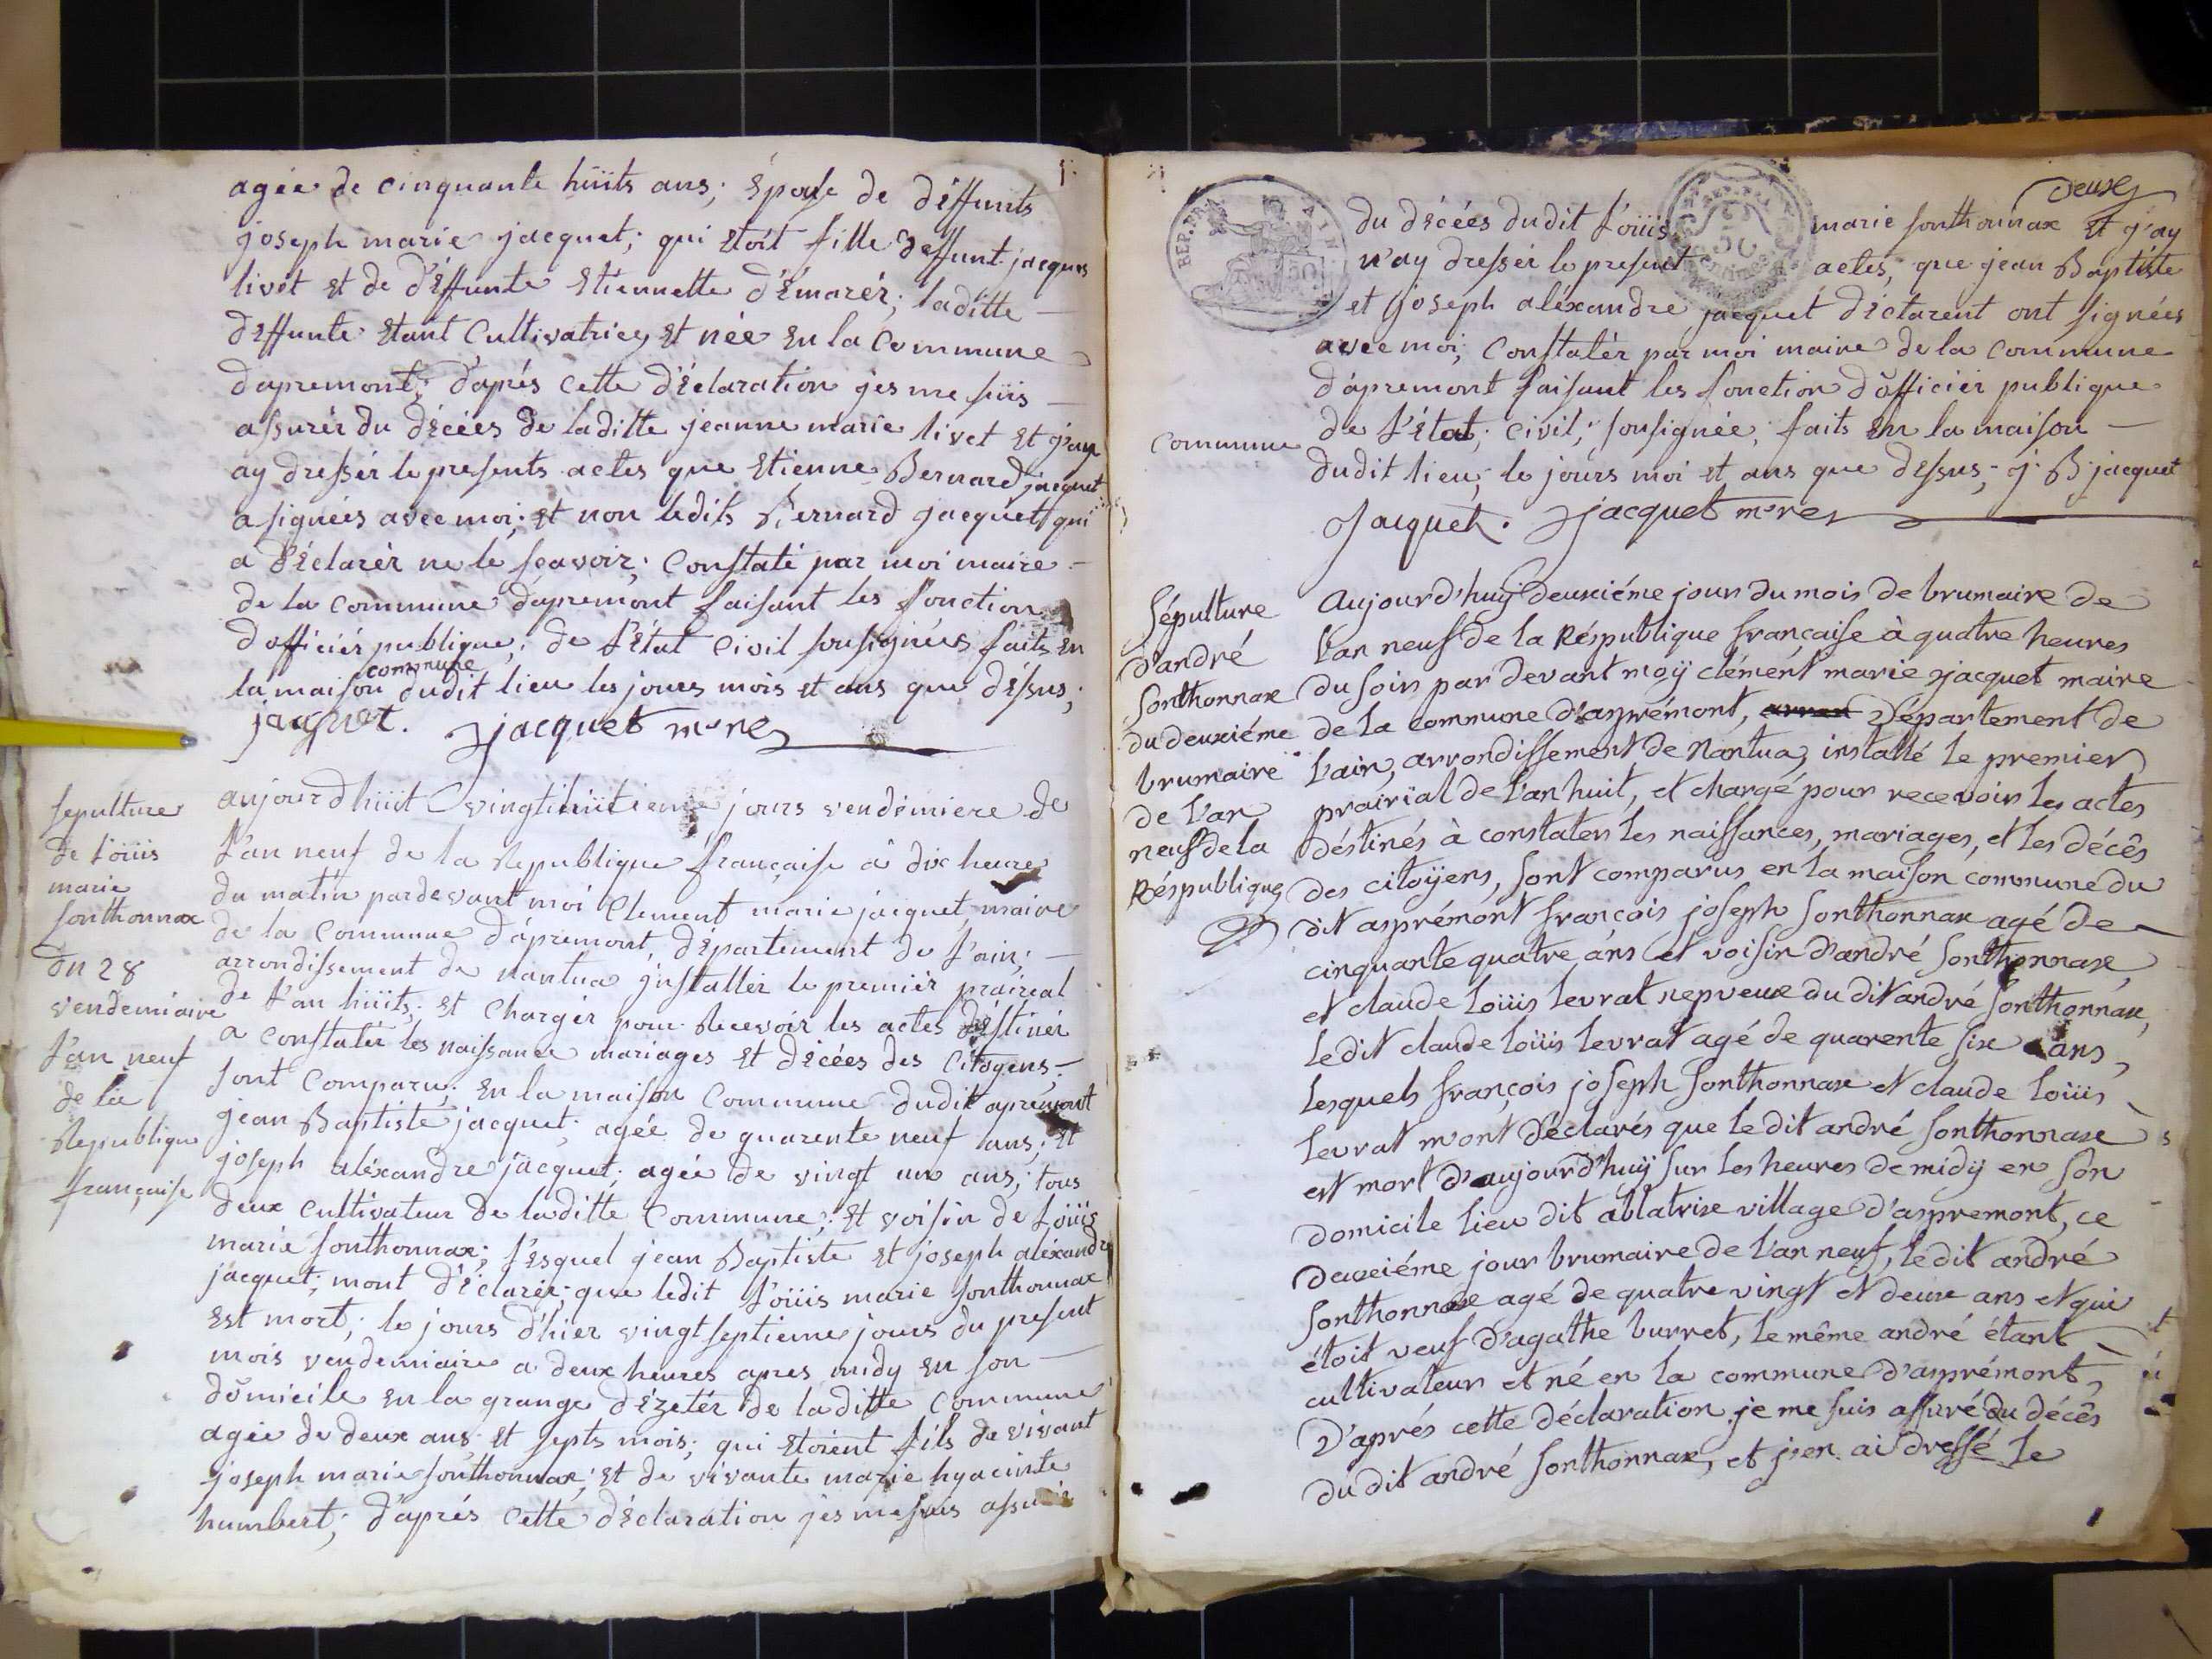 agée de cinquante hüits ans; épouse de déffunts
joseph marie jacquet; qui étoit fille deffunt jacques
livet et de déffunte étiennette démarér; laditte
deffunte étant Cultivatrice, et née en la Commune
dapremont; d'aprés cette déclaration jes me süis
assurér du décées de laditte jeanne marie livet et j'en
ay dressér le presents actes que étienne Bernard jacquet
a signées avec moi; et non ledits Bernard jacquet qui
a déclarér ne le sçavoir; Constaté par moi maire
de la Commune dapremont faisant les fonction
d officiér publique; de l'état Civil sousignées faits en
commune
la maison dudit lieu les jours mois et ans que déssus;
jacquet. Jacquet mre
sepulture
de loüis
marie
sonthonnax
du 28
vendemiaire
l'an neuf
de la
Republique
française
aujourdhüit vingthüitieme jours vendémiere de
l'an neuf de la Republique française à dix heures
du matin pardevant moi Clement marie jacquet, maire
de la Commune dapremont, département de l'ain;
arrondissement de nantua jnstallér le premiér prairéal
de l'an hüits; et Chargér pour Recevoir les actes déstinér
a constatér les naissance mariages et décées des Citoyens;
sont Comparu; en la maison Commune dudit apremont
jean Baptiste jacquet; agée de quarente neuf ans; et
joseph aléxandre jacquet; agée de vingt un ans; tous
deux cultivateur de laditte Commune; et voisin de loüis
marie sonthonnax; l'esquel jean Baptiste et joseph aléxandre
jacquet; mont déclarér; que ledit loüis marie sonthonnax
est mort; le jours d'hier vingt septieme jours du present
mois vendemiaire a deux heures apres midy en son
domicile en la grange dézetér de laditte Commune
agée de deux ans, et septs mois; qui étoient fils de vivant
joseph marie sonthonnax; et de vivante marie hyacinte
humbert; d'aprés cette déclaration jes me suis assurér
deux
REP. FRA.
AIN
50
REP. FRA.
50
centimes
du décées dudit loüis marie sonthonnax et j'ay
n'ay dressér le present actes, que jean Baptiste
et joseph aléxandre jacquet déclarent ont signées
avec moi; Constatér par moi maire de la Commune
dapremont faisant les fonction d'officiér publique
de l'état; civil; sousignée; faits en la maison
commune
dudit lieu; le jours moi et ans que dessus; j. B jacquet
Jacquet. Jacquet mre
Sépulture
d'andré
Sonthonnax
du deuxiéme
brumaire
de l'an
neuf de la
Réspublique
Aujourd'huÿ deuxiéme jour du mois de brumaire de
l'an neuf de la Réspublique française à quatre heures
du soir par devant moÿ clément marie jacquet maire
de la commune d'asprémont, arron Département de
l'ain, arrondissement de Nantua, installé le premier
prairïal de l'an huit, et chargé pour recevoir les actes
déstinés à constater les naissances, mariages, et les décês
des citoÿens, sont comparus en la maison commune du
dit asprémont françois joseph sonthonnax agé de
cinquante quatre ans et voisin d'andré Sonthonnax,
et claude loüis levrat nepveux du dit andré Sonthonnax,
ledit claude loüis levrat agé de quarente six ans,
lesquels françois joseph sonthonnax et claude loüis
levrat m'ont déclarés que le dit andré sonthonnax
est mort d'aujourd'huÿ sur les heures de midÿ en son
domicile lieu dit ablatrixe village d'aspremont, ce
deuxiéme jour brumaire de l'an neuf, le dit andré
sonthonnax agé de quatre vingt et deux ans et qui
étoit veuf d'agathe burret, le même andré étant
cultivateur et né en la commune d'asprémont,
D'aprés cette déclaration je me suis assuré du décês
du dit andré sonthonnax, et j'en ai dressé le